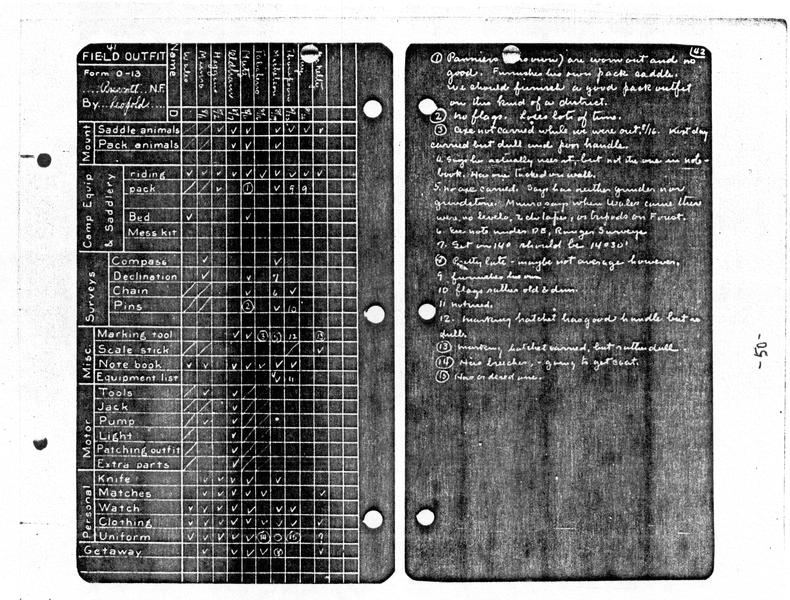 41
FIELD OUTFIT
Form O-13
N.F.
By Leopold
Name
D
Mount
Saddle animals
Pack animals
Camp Equip & Saddlery
riding
pack
Bed
Mess kit
Surveys
Compass
Declination
Chain
Pins
Misc.
Marking tool
Scale stick
Note book
Equipment list
Motor
Tools
Jack
Pump
Light
Patching outfit
Extra parts
Personal
Knife
Matches
Watch
Clothing
Uniform
Getaway
42
① Panniers (his own) are worn out and no
good. Furnishes his own pack saddle.
We should furnish a good pack outfit
on this kind of a district.
② No flags. Loses lots of time.
③ axe not carried while we were out, 9/16. Next day
carried but dull and poor handle.
4. Says he actually uses it, but not the one in note-
book. Has one tacked on wall.
5. no axe carried. Says has neither grinder nor
grindstone. Munro says when Wales came there
were no levels, 2 ch tapes, or tripods on Forest.
6. See note under DB, Ranger Surveys
7. Set on 140 should be 14°30'
⑧ Pretty late - maybe not average however.
9. furnishes his own
10. flags rather old & dim.
11. not used.
12. marking hatchet has good handle but is
dull.
⑬ marking hatchet carried, but rather dull.
⑭ Has breeches, - going to get coat.
⑮ Has ordered one.
-50-